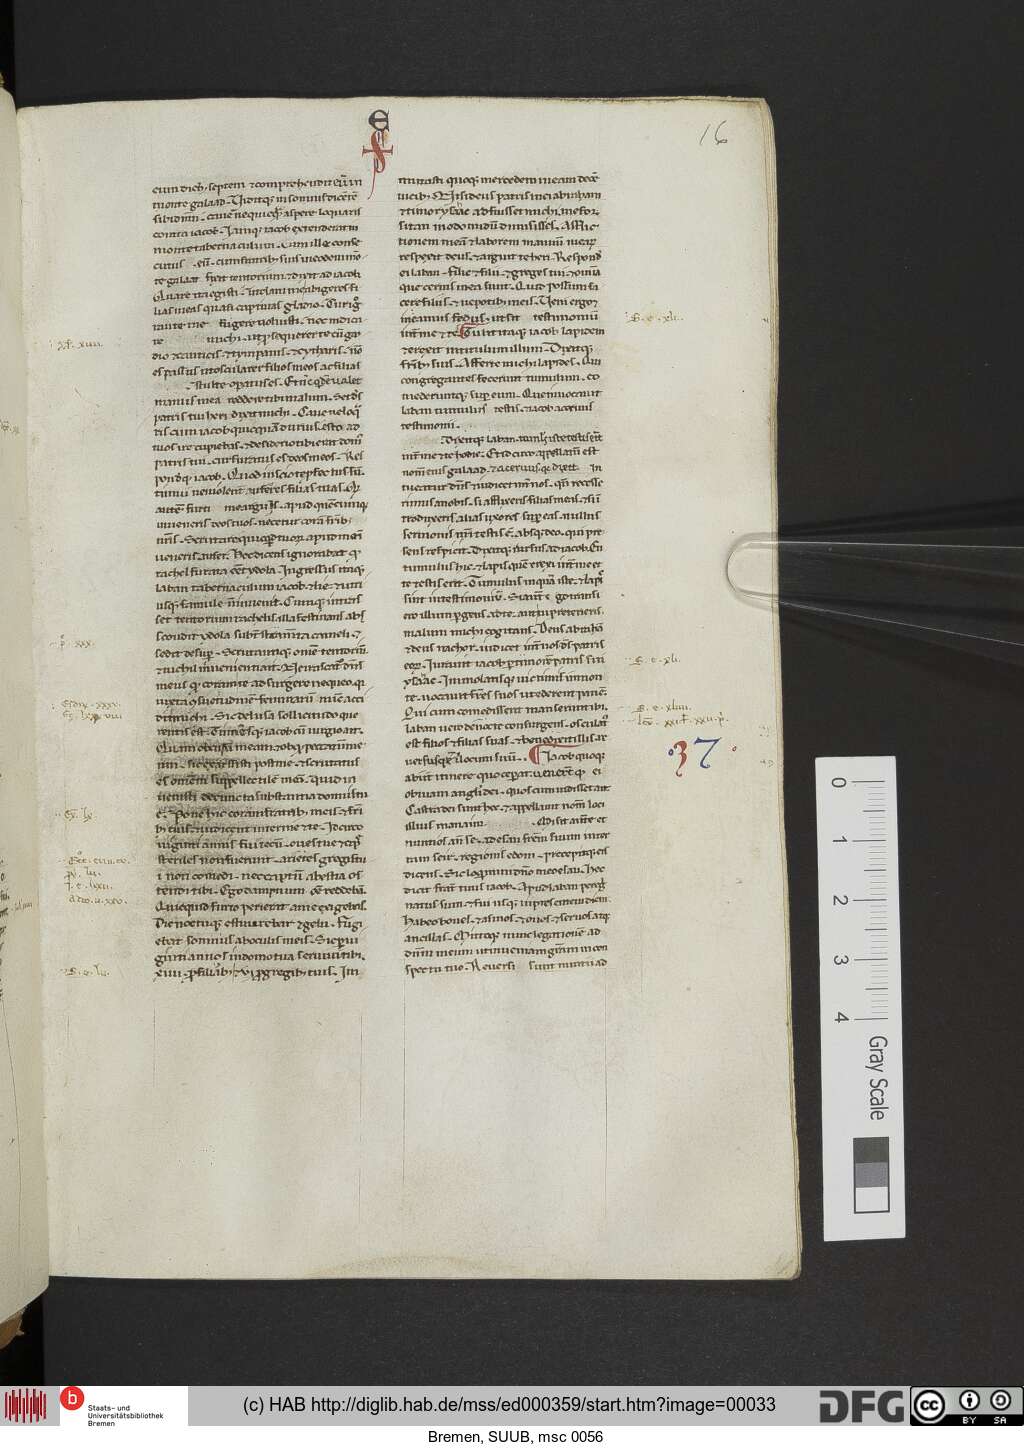 16
eum dieb; septem & comprehendit eu in
monte galaad. Viditq; in somnis dicente
sibi dnm. Cave ne quicq aspere loquaris
contra iacob. Iamq; iacob extenderat in
monte tabernaculum. Cum ille conse
te galaat fixit tentorium & dixit ad iacob
Quare ita egisti
lias meas quasi captivas gladio. Cur ig
rante me fugere voluisti. nec indica
te michi. ut psequerer te cu gau
dio & canticis & tympanis & cytharis. no
es passus ut oscularer filios meos ac filias
Stulte operatus es. Et nc qde valet
manus mea reddere tibi malum. Set ds
patris tui heri dixit michi. Cave ne loq
ris cum iacob quicqua durius. esto ad
tuos ire cupiebas. & desiderio tibi erat dom
patris tui. cur furatus es deos meos. Res
pond iacob. Quod inscio te pfectus su.
timui ne violent auferres filias tuas. Qd
aute furti me arguis. apud quecumq;
inveneris deos tuos. necetur cora frib;
nris. Scrutare quicqd tuor apud me
inveneris. & aufer. Hec dicens ignorabat q
rachel furata eet ydola. Ingressus itaq;
laban tabernaculum iacob & lie & utri
usq; famule. n invenit. Cumq; intras
set tentorium rachelis. illa festinans abs
condit ydola subt stramta cameli. &
sedit desup. Scrutantiq; ome tentoriu
& nichil invenienti ait. Ne irascat dns
meus q coram te adsurgere nequeo. q
iuxta csuetudine feminaru nuc acci
dit michi. Sic delusa sollicitudo que
rentis est. Tumesq; iacob cu iurgio ait.
Quam ob culpa meam & ob q peccatum me
um. sic exarsisti post me & scrutatus
es omem suppellectile mea. Quid in
venisti de cuncta substantia domus tu
e. Pone hic coram frib; meis & fri
b; tuis. & iudicent inter me & te. Idcirco
viginti annis fui tecu. oves tue & cap
steriles non fuerunt. arietes gregis tu
i non comedi. nec captu a bestia os
tendi tibi. Ego dampnum oe reddeba.
Quicquid furto perierat a me exigebas.
Die noctuq; estu urebar & gelu. Fugi
ebat somnus ab oculis meis. Sic p vi
ginti annos in domo tua servivi tibi.
xiiii. p filiab; & vi. p gregib; tuis. Im
mutasti quoq; mercedem meam dece
vicib;. Nisi deus patris mei abraham
& timor ysaac adfuisset michi. me for
sitan modo nudu dimisisses. Afflic
tionem mea & laborem manuu mear
respexit deus. & arguit te heri. Respond
ei laban. filie & filii & greges tui & omia
que cernis mea sunt. Quid possum fa
cere filiis & nepotib; meis. Veni ergo &
ineamus fedus. ut sit testimoniu
int me & te. Tulit itaq; iacob lapidem
& erexit in titulum illum. Dixitq;
frib; suis. Afferte michi lapides. Qui
congregantes fecerunt tumulum. co
mederuntq; sup eum. Que vocavit
laban tumulus testis. & iacob acervus
testimonii.
Dixitq; laban. tumulus iste testis erit
int me & te hodie. Et idcirco appellatu est
nom eius galaad
tueatur dns & iudicet int nos. qn recesse
rimus a nobis. si afflixeris filias meas. & si
introduxeris alias uxores sup eas. nullus
sermonis nri testis e. absq; deo. qui pre
sens respicit. Dixitq; rursus ad iacob. En
tumulus hic & lapis que erexi int me &
te testis erit. Tumulus inqua iste & lapis
sint in testimoniu. Si aut ego transi
ero illum pgens ad te. aut tu preterieris.
malum michi cogitans. Deus abraha
& deus nachor iudicet int nos. ds patris
eor. Iuravit iacob p timore patris sui
ysaac. Immolatisq; victimis in mon
te. vocavit fres suos ut ederent pane.
Qui cum comedissent manserunt ibi.
Laban vero de nocte consurgens. osculat
est filios & filias suas. & benedixit illis. re
versusq; e in locum suum. Iacob quoq;
abiit itinere quo ceperat. fuerunt q ei
obviam angli dei. quos cum vidisset ait.
Castra dei sunt hec. & appellavit nom loci
illius manaim. Misit aute et
nuntios an se. ad esau frem suum in ter
ram seir. regionis edom. precepitq; eis
dicens. Sic loquimini dno meo esau. Hec
dicit frat tuus iacob. Apud laban pereg
natus sum. & fui usq; in presentem diem.
Habeo boves. & asinos. & oves. & servos atq;
ancillas. Mittoq; nunc legatione ad
dnm meum ut inveniam gram in con
spectu tuo. Reversi sunt nuntii ad
37
0
1
2
3
4
Gray Scale
b
Staats- und
Universitätsbibliothek
Bremen
(c) HAB http://diglib.hab.de/mss/ed000359/start.htm?image=00033
DFG
cc
BY SA
Bremen, SUUB, msc 0056